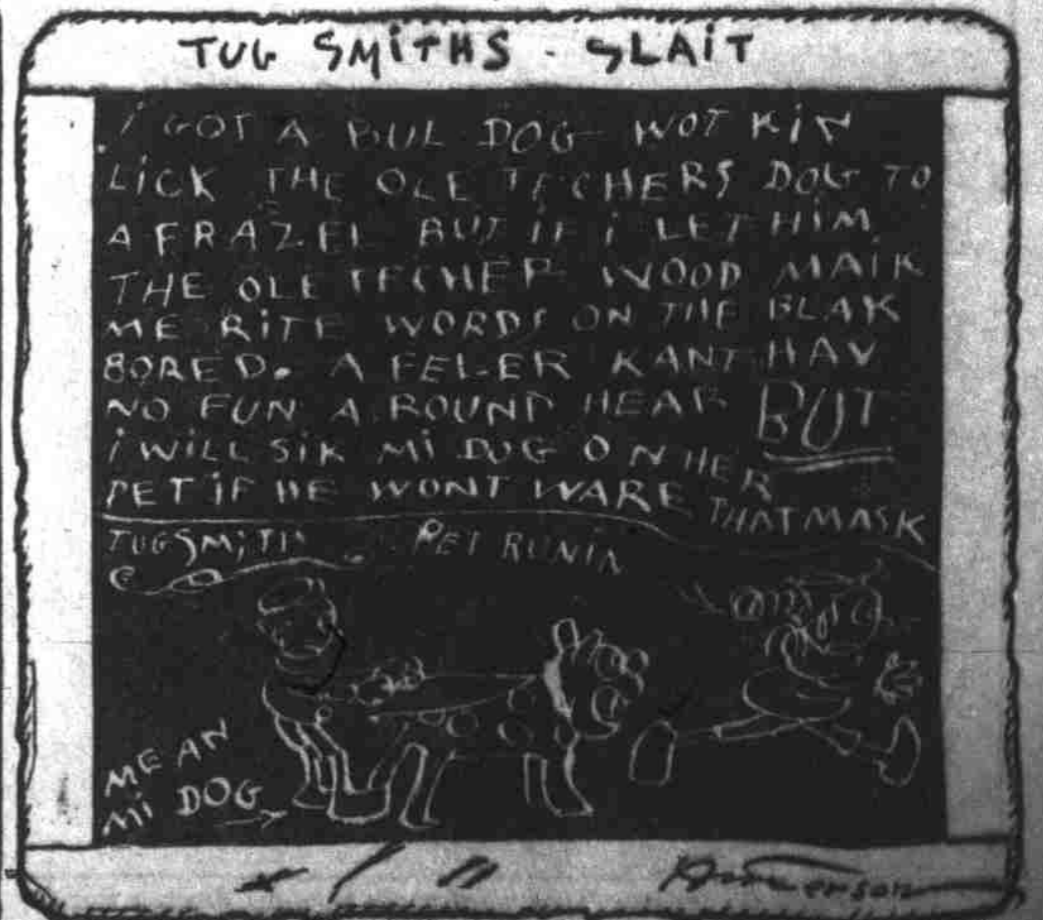 TUG SMITHS - SLAIT
I GOT A BUL DOG WOT KIN
LICK THE OLE TECHERS DOG TO
A FRAZEL BUT IF I LET HIM
THE OLE TECHER WOOD MAIK
ME RITE WORDS ON THE BLAK
BORED. A FELER KANT HAV
NO FUN A ROUND HEAR BUT
I WILL SIK MI DOG ON HER
PET IF HE WONT WARE THAT MASK
TUG SMITH
PET RUNIN
ME AN
MI DOG